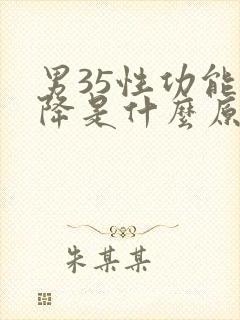 男35性功能
降是什麼原
朱某某